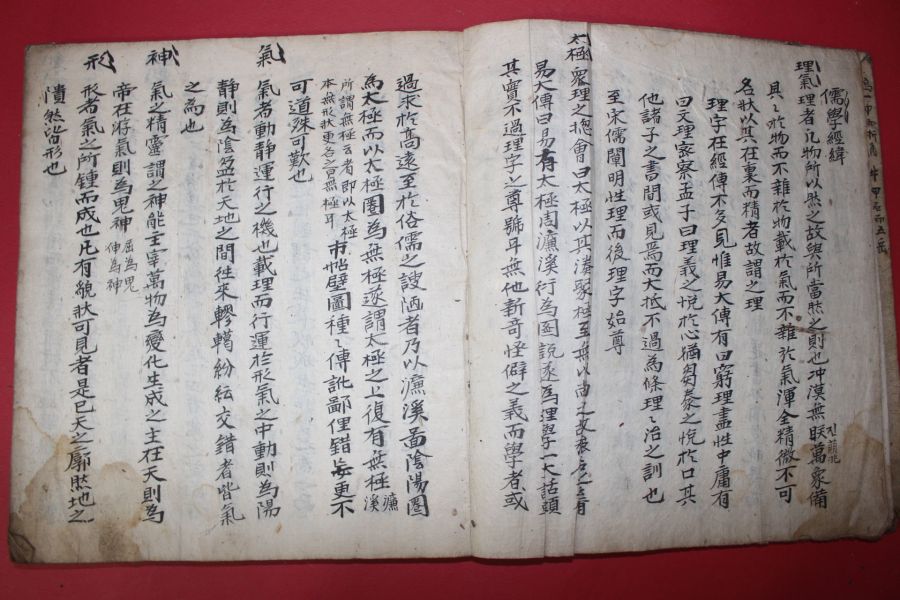 儒學經緯
理氣 理者凡物所以然之故與所當然之則也冲漠無眹萬象備
具在於物而不雜於物載於氣而不雜於氣渾全精微不可
名狀以其在裏而精者故謂之理
理字在經傳不多見惟易大傳有曰窮理盡性中庸有
曰文理密察孟子曰理義之悅於心猶芻豢之悅於口其
他諸子之書間或見焉而大抵不過為條理之治之訓也
至宋儒闡明性理而後理字始尊
太極 衆理之揔會曰太極以其湊聚
易大傳曰易有太極周濂溪衍為圖說遂為理學一大話頭
其實不過理字之尊號耳無他新奇怪僻之義而學者或
過求於高遠至於俗儒之謏陋者乃以濂溪啚陰陽圈
為太極而以太極圈為無極遂謂太極之上復有無極 濂溪
所謂無極云者即以太極
本無形狀更名之曰無極耳
市帖壁圖種種傳訛鄙俚錯
可道殊可歎也
氣 氣者動靜運行之機也載理而行運於形氣之中動則為陽
靜則為陰盈於天地之間往來轇轕紛紜交錯者皆氣
之為也
神 氣之精靈謂之神能主宰萬物為變化生成之主在天則為
帝在於氣則為鬼神 屈為鬼 伸為神
形 形者氣之所鍾而成也凡有貌狀可見者是已天之廓然地之
隤然皆形也